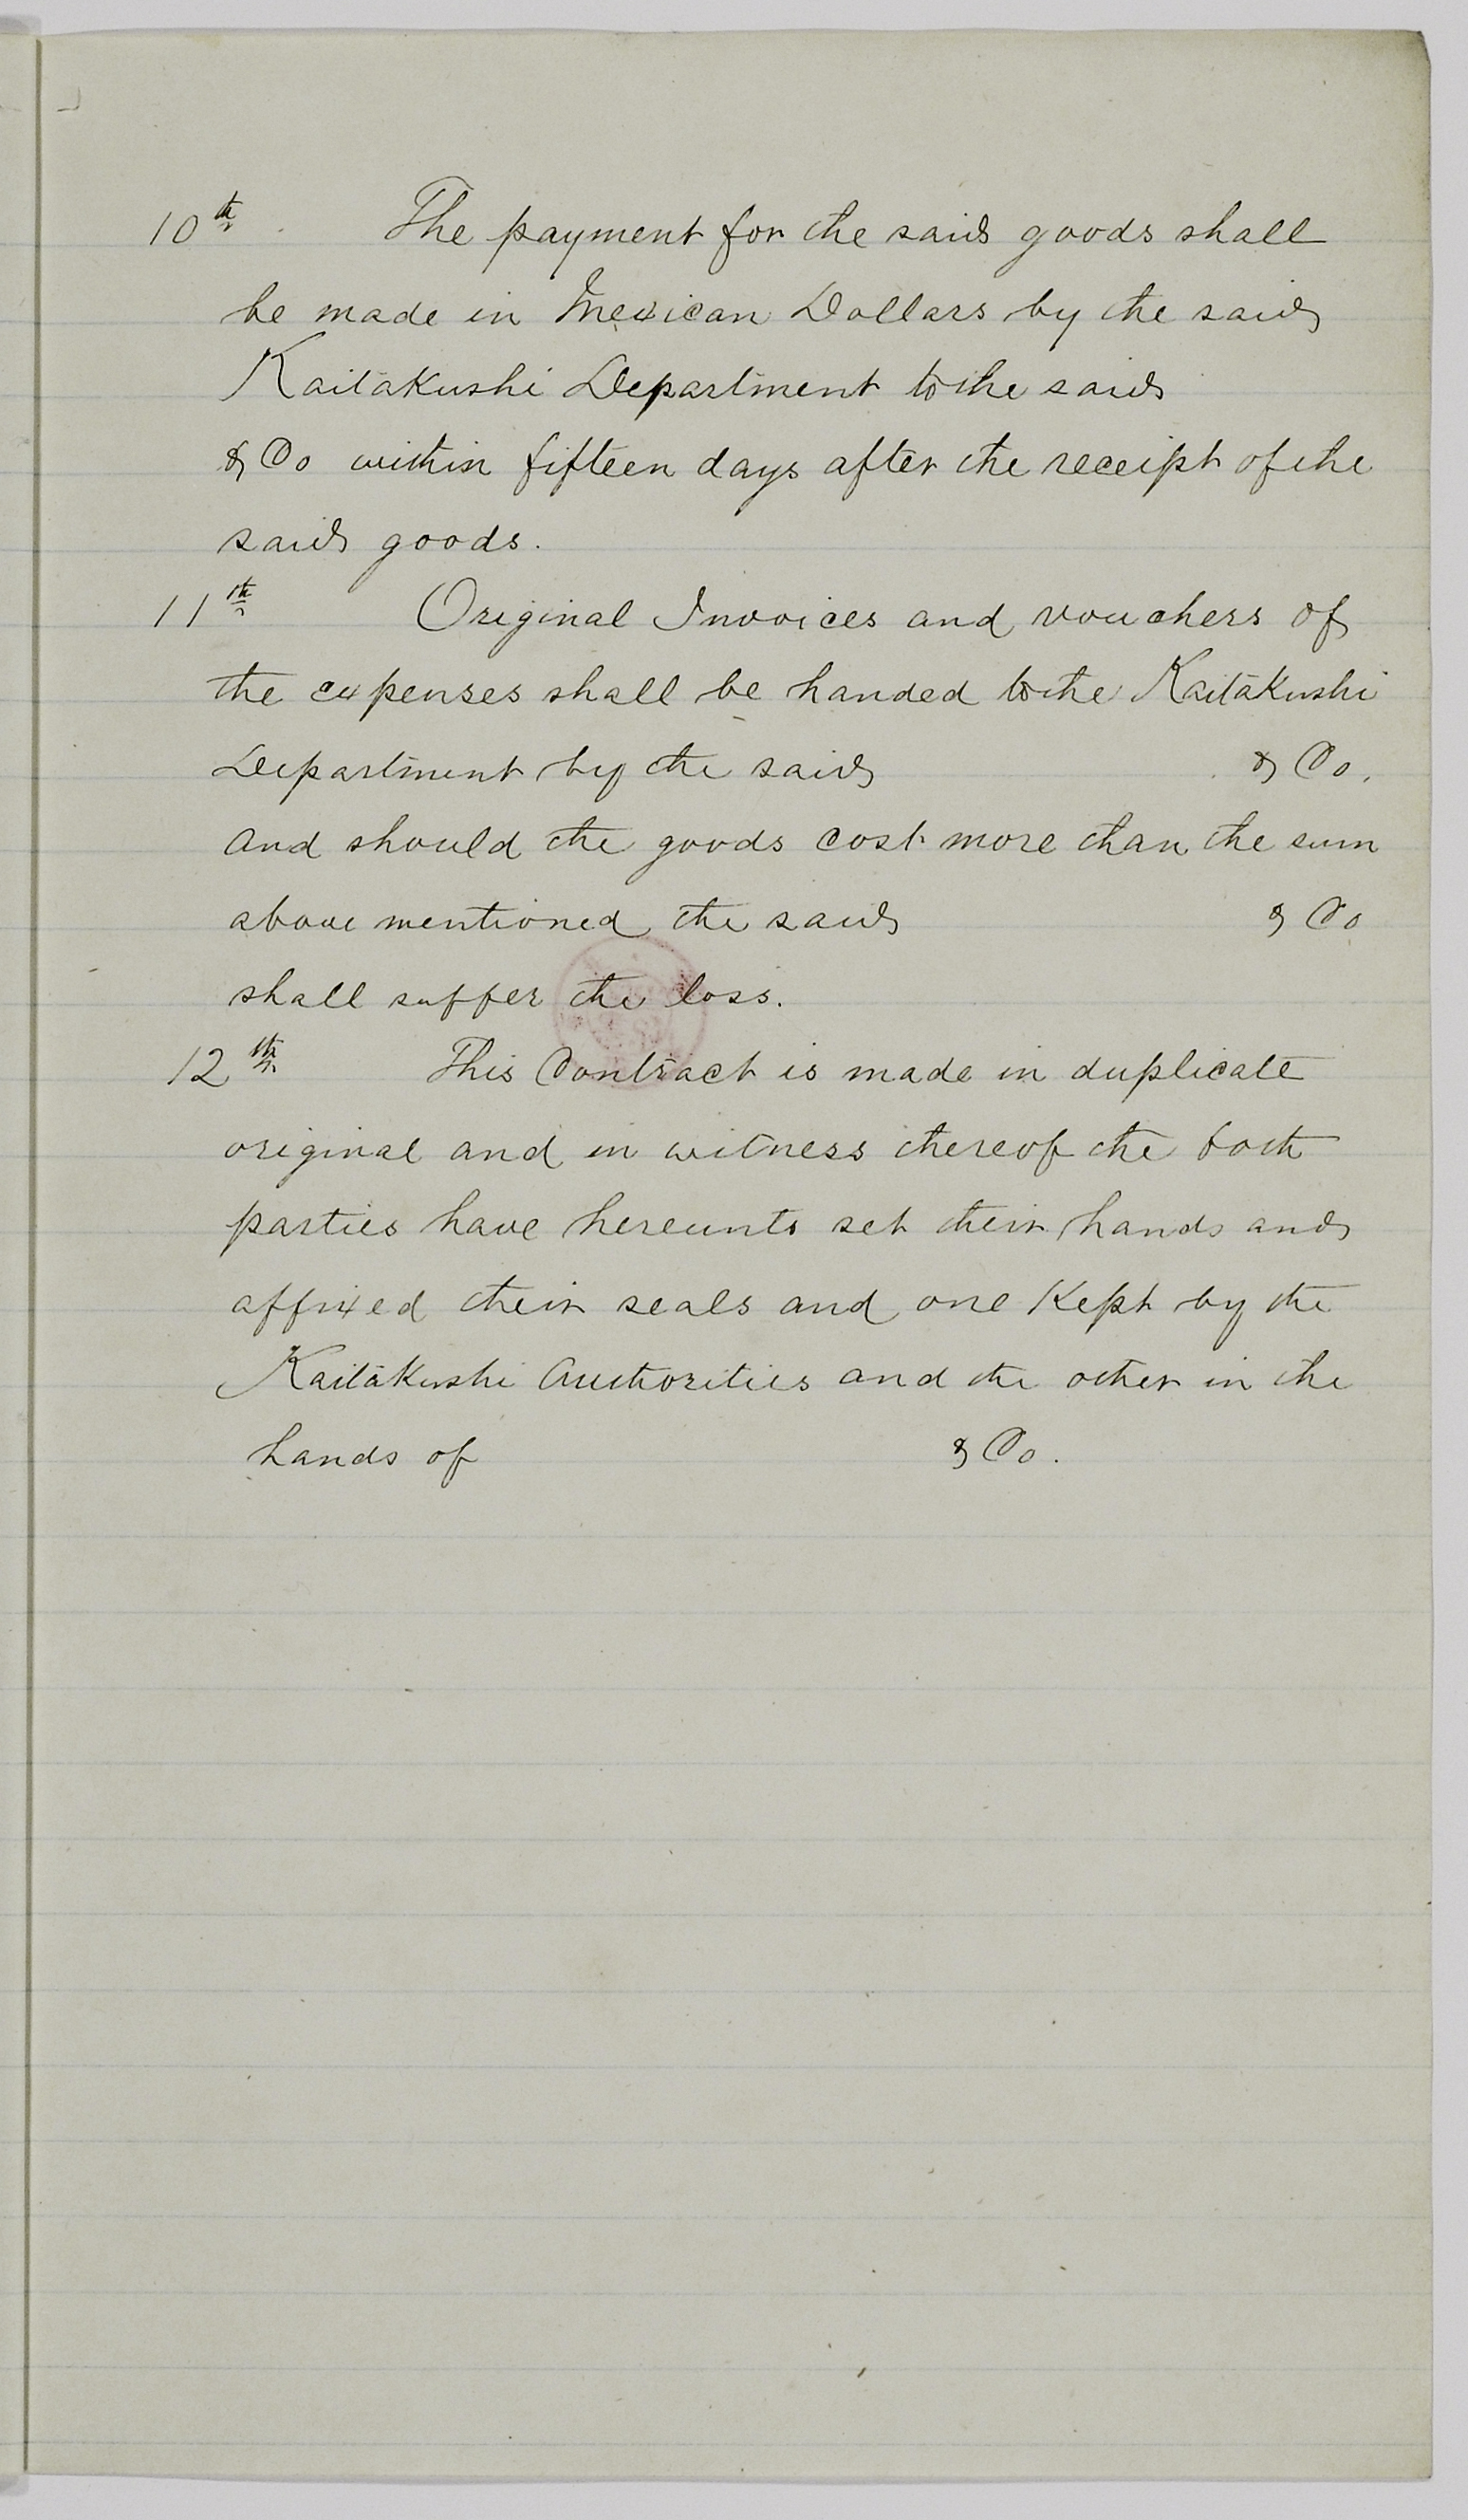 10th. The payment for the said goods shall
be made in Mexican Dollars by the said
Kaitakushi Department to the said
& Co within fifteen days after the receipt of the
said goods.
11th Original Invoices and vouchers of
the expenses shall be handed to the Kaitakushi
Department by the said & Co.
and should the goods cost more than the sum
above mentioned the said & Co
shall suffer the loss.
12th This Contract is made in duplicate
original and in witness thereof the both
parties have hereunto set their hands and
affixed their seals and one Kept by the
Kaitakushi Authorities and the other in the
hands of & Co.